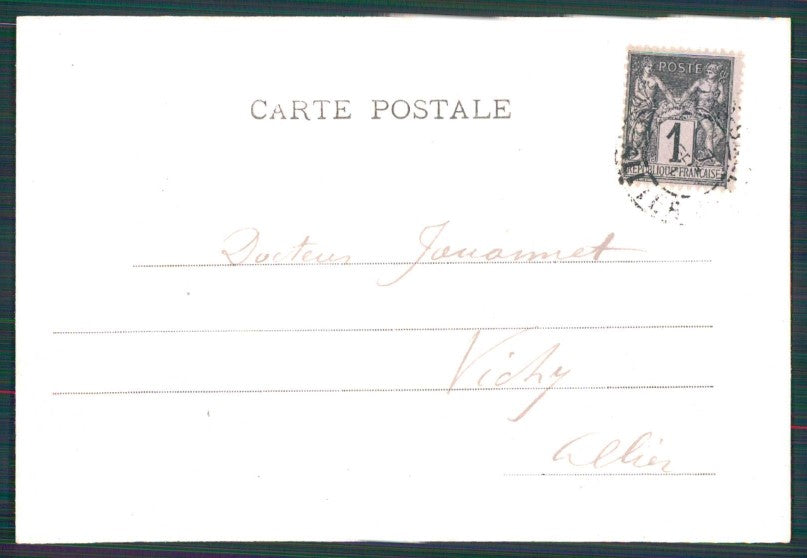 CARTE POSTALE
POSTE
1
RÉPUBLIQUE FRANÇAISE
Docteur Jouannet
Vichy
Allier